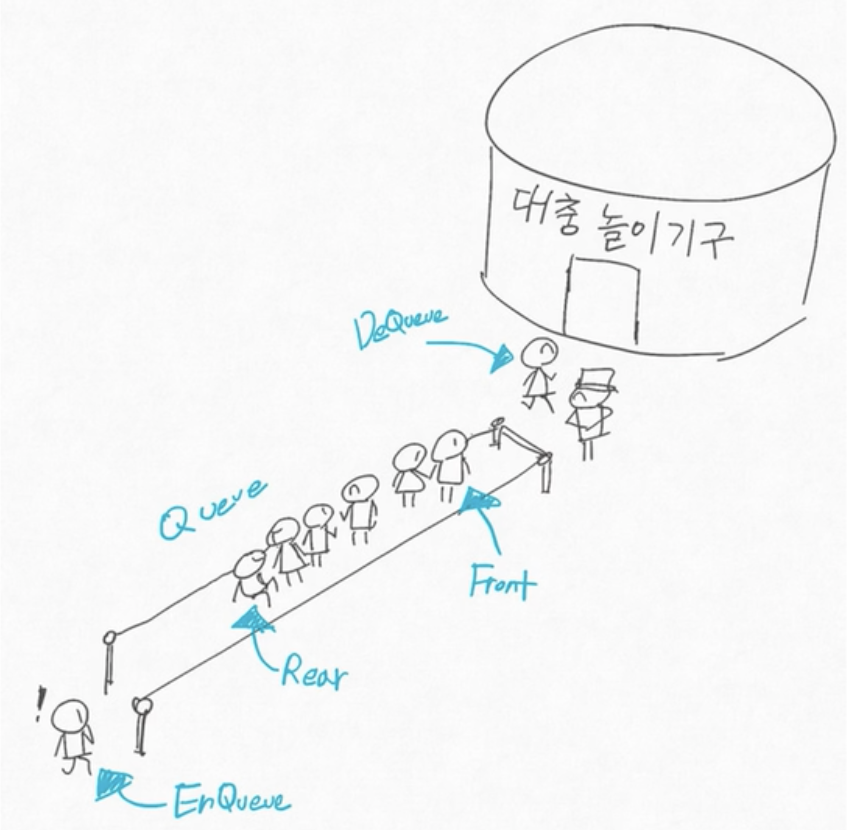 대충 놀이기구
DeQueue
Queue
Front
Rear
!
EnQueue